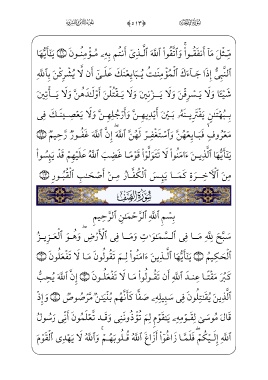 مِّثْلَ مَآ أَنفَقُوا۟ ۚ وَٱتَّقُوا۟ ٱللَّهَ ٱلَّذِىٓ أَنتُم بِهِۦ مُؤْمِنُونَ ۝١١ يَـٰٓأَيُّهَا
ٱلنَّبِىُّ إِذَا جَآءَكَ ٱلْمُؤْمِنَـٰتُ يُبَايِعْنَكَ عَلَىٰٓ أَن لَّا يُشْرِكْنَ بِٱللَّهِ
شَيْـًٔا وَلَا يَسْرِقْنَ وَلَا يَزْنِينَ وَلَا يَقْتُلْنَ أَوْلَـٰدَهُنَّ وَلَا يَأْتِينَ
بِبُهْتَـٰنٍ يَفْتَرِينَهُۥ بَيْنَ أَيْدِيهِنَّ وَأَرْجُلِهِنَّ وَلَا يَعْصِينَكَ فِى
مَعْرُوفٍ ۙ فَبَايِعْهُنَّ وَٱسْتَغْفِرْ لَهُنَّ ٱللَّهَ ۖ إِنَّ ٱللَّهَ غَفُورٌ رَّحِيمٌ ۝١٢
يَـٰٓأَيُّهَا ٱلَّذِينَ ءَامَنُوا۟ لَا تَتَوَلَّوْا۟ قَوْمًا غَضِبَ ٱللَّهُ عَلَيْهِمْ قَدْ يَئِسُوا۟
مِنَ ٱلْـَٔاخِرَةِ كَمَا يَئِسَ ٱلْكُفَّارُ مِنْ أَصْحَـٰبِ ٱلْقُبُورِ ۝١٣
سُورَةُ الصَّفِّ
بِسْمِ ٱللَّهِ ٱلرَّحْمَـٰنِ ٱلرَّحِيمِ
سَبَّحَ لِلَّهِ مَا فِى ٱلسَّمَـٰوَٰتِ وَمَا فِى ٱلْأَرْضِ ۖ وَهُوَ ٱلْعَزِيزُ
ٱلْحَكِيمُ ۝١ يَـٰٓأَيُّهَا ٱلَّذِينَ ءَامَنُوا۟ لِمَ تَقُولُونَ مَا لَا تَفْعَلُونَ ۝٢
كَبُرَ مَقْتًا عِندَ ٱللَّهِ أَن تَقُولُوا۟ مَا لَا تَفْعَلُونَ ۝٣ إِنَّ ٱللَّهَ يُحِبُّ
ٱلَّذِينَ يُقَـٰتِلُونَ فِى سَبِيلِهِۦ صَفًّا كَأَنَّهُم بُنْيَـٰنٌ مَّرْصُوصٌ ۝٤ وَإِذْ
قَالَ مُوسَىٰ لِقَوْمِهِۦ يَـٰقَوْمِ لِمَ تُؤْذُونَنِى وَقَد تَّعْلَمُونَ أَنِّى رَسُولُ
ٱللَّهِ إِلَيْكُمْ ۖ فَلَمَّا زَاغُوٓا۟ أَزَاغَ ٱللَّهُ قُلُوبَهُمْ ۚ وَٱللَّهُ لَا يَهْدِى ٱلْقَوْمَ